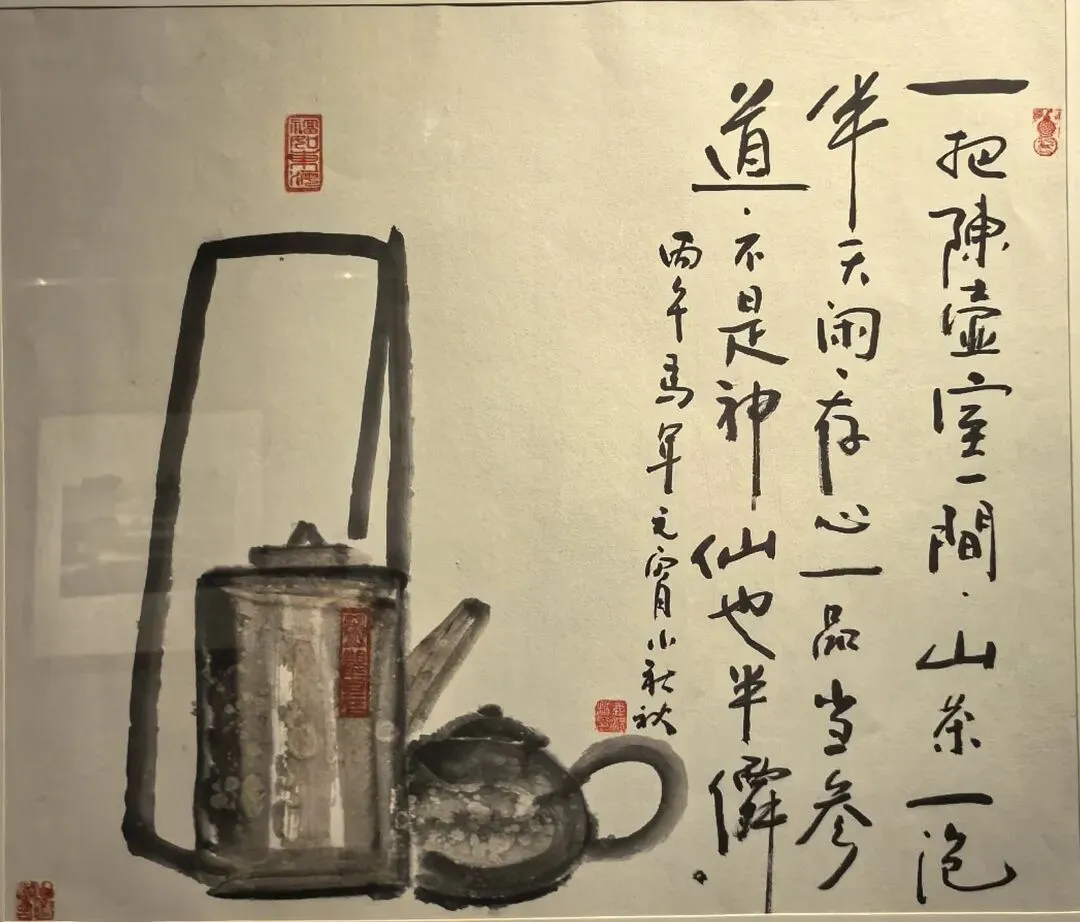 一把陳壺室一間·山茶一泡
半天闲、存心一品当参
道·不是神仙也半僊。
丙午马年元宵小秋
福如東海